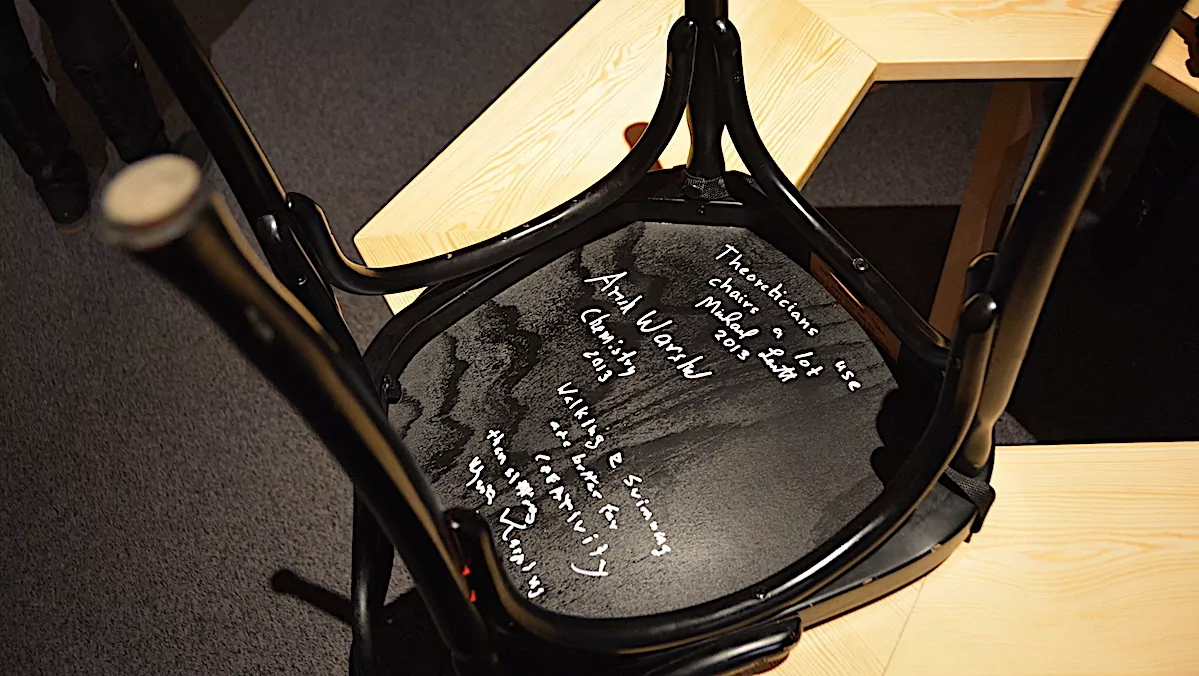 Theoreticians use
chairs a lot
Michael Levitt
2013
Arieh Warshel
Chemistry
2013
Walking & swimming
are better for
CREATIVITY
than sitting
Karplus